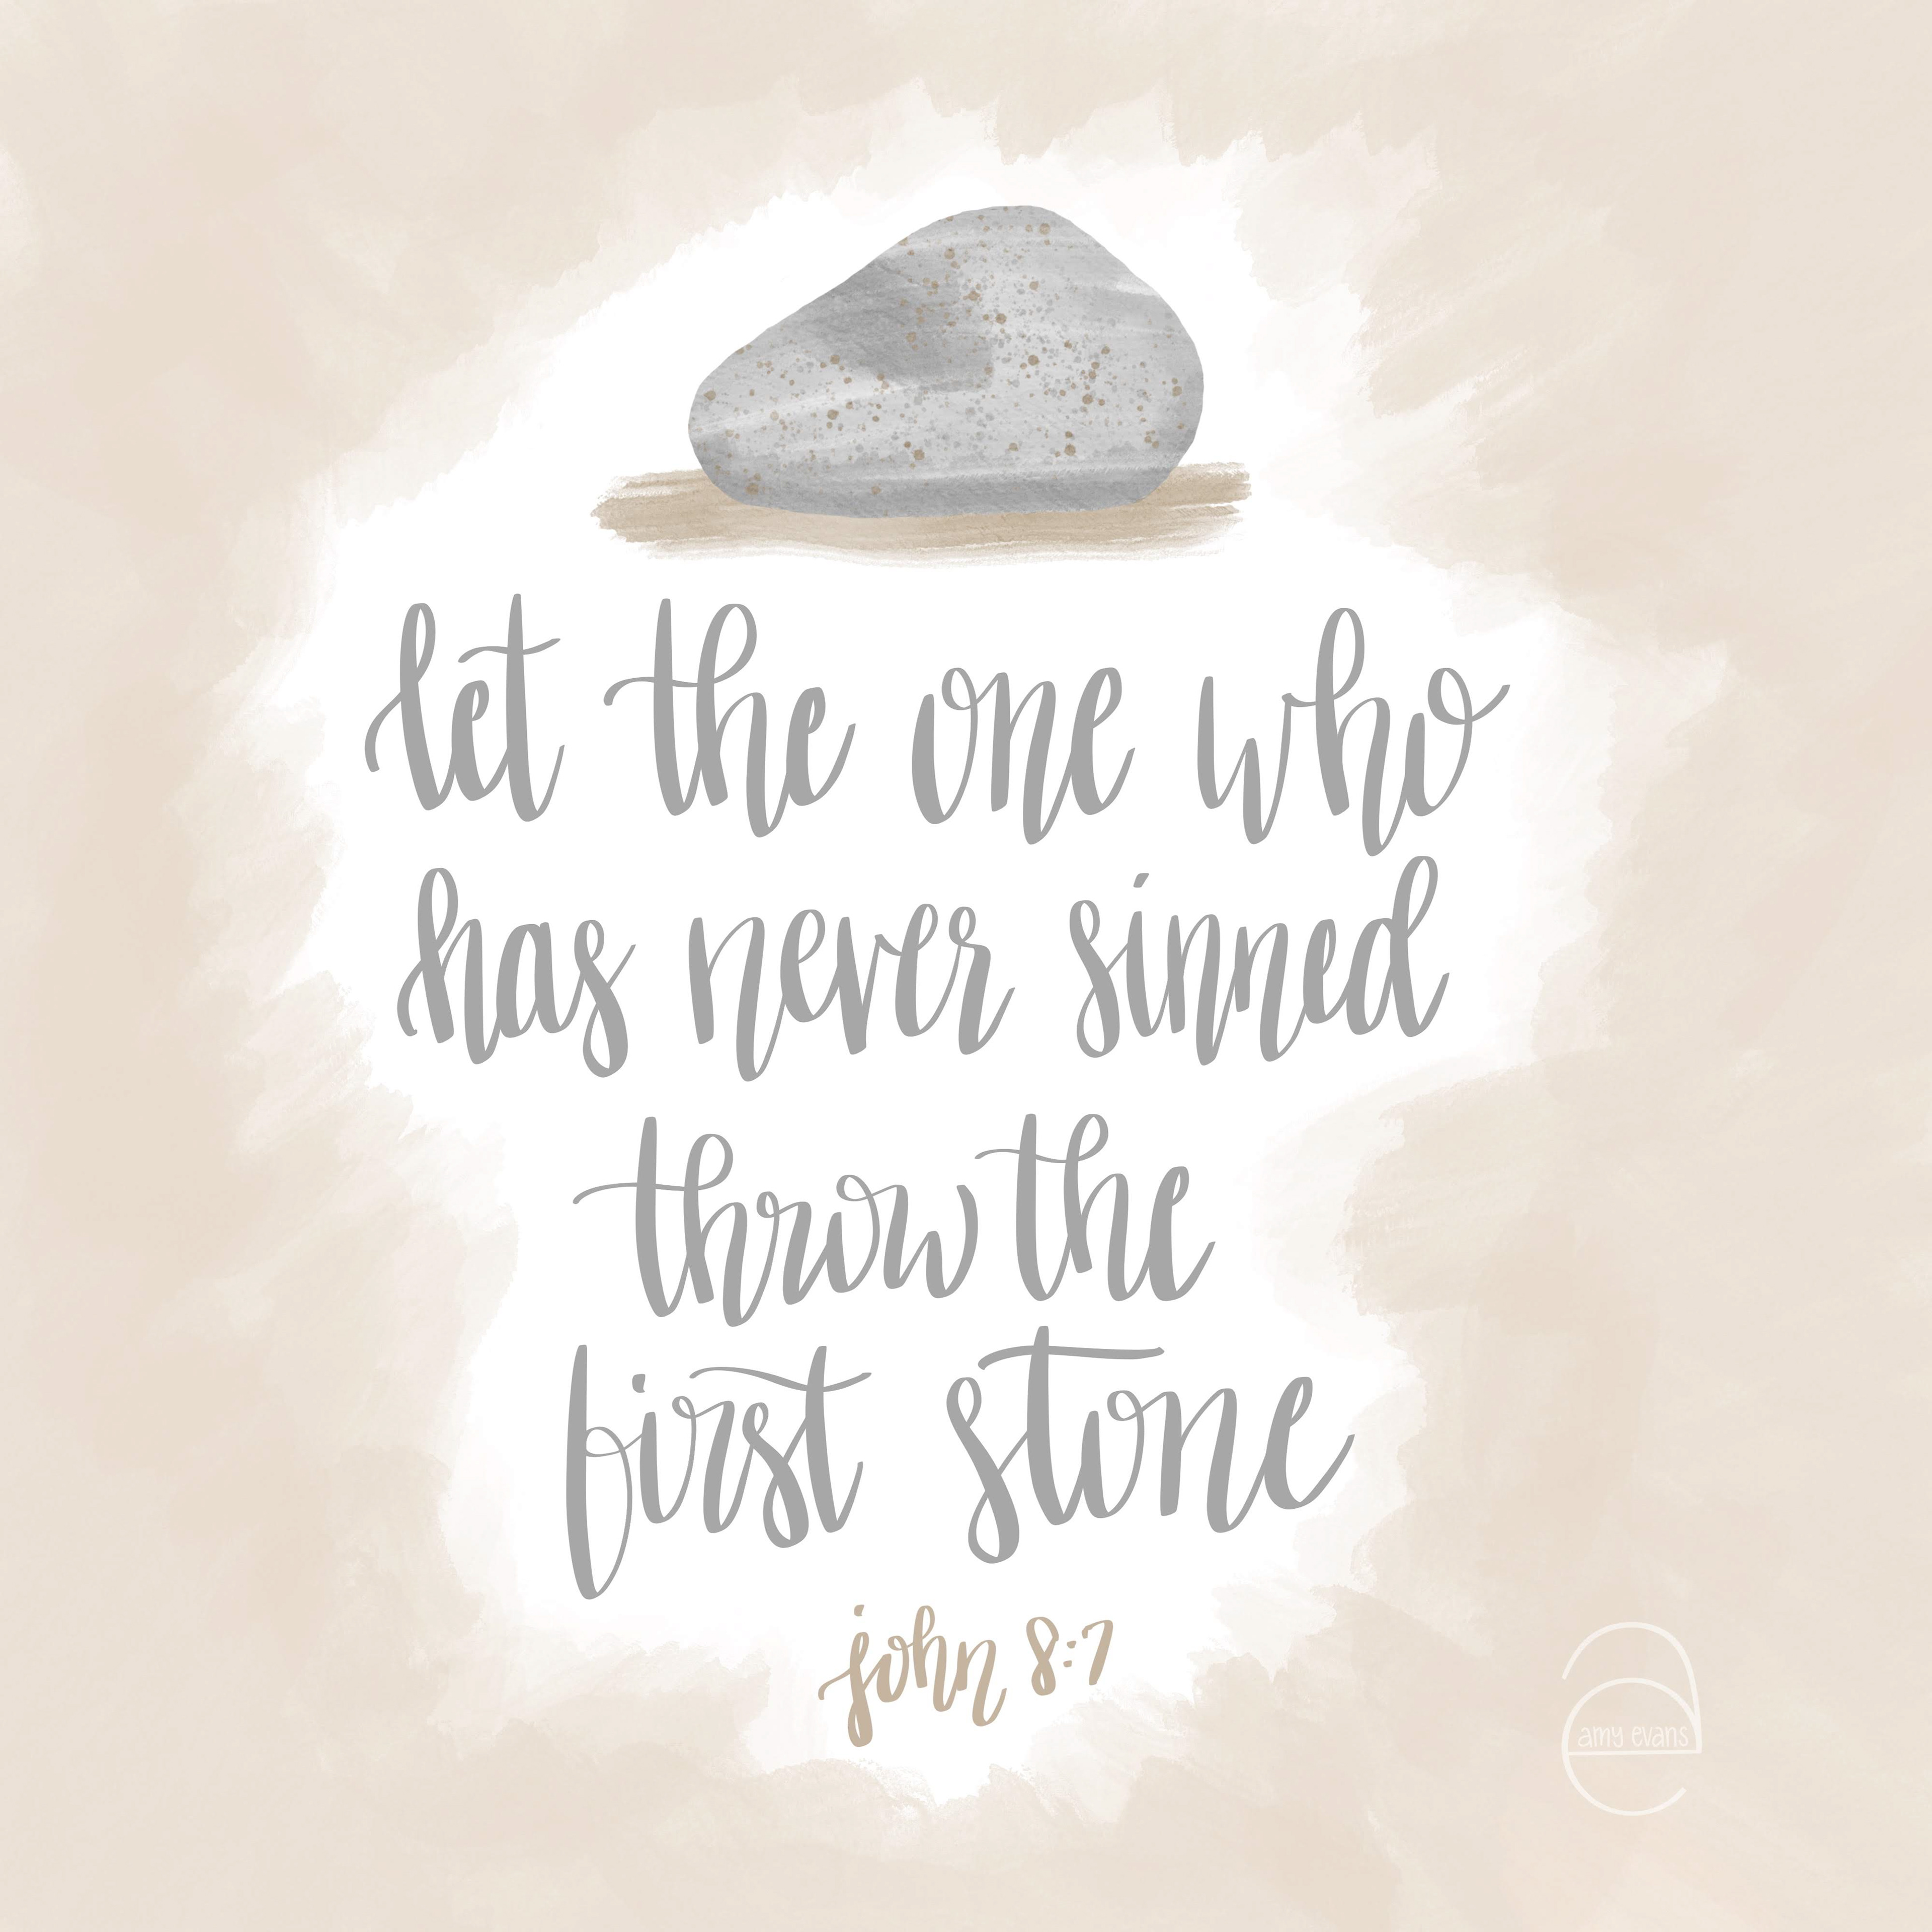 let the one who
has never sinned
throw the
first stone
john 8:7
amy evans